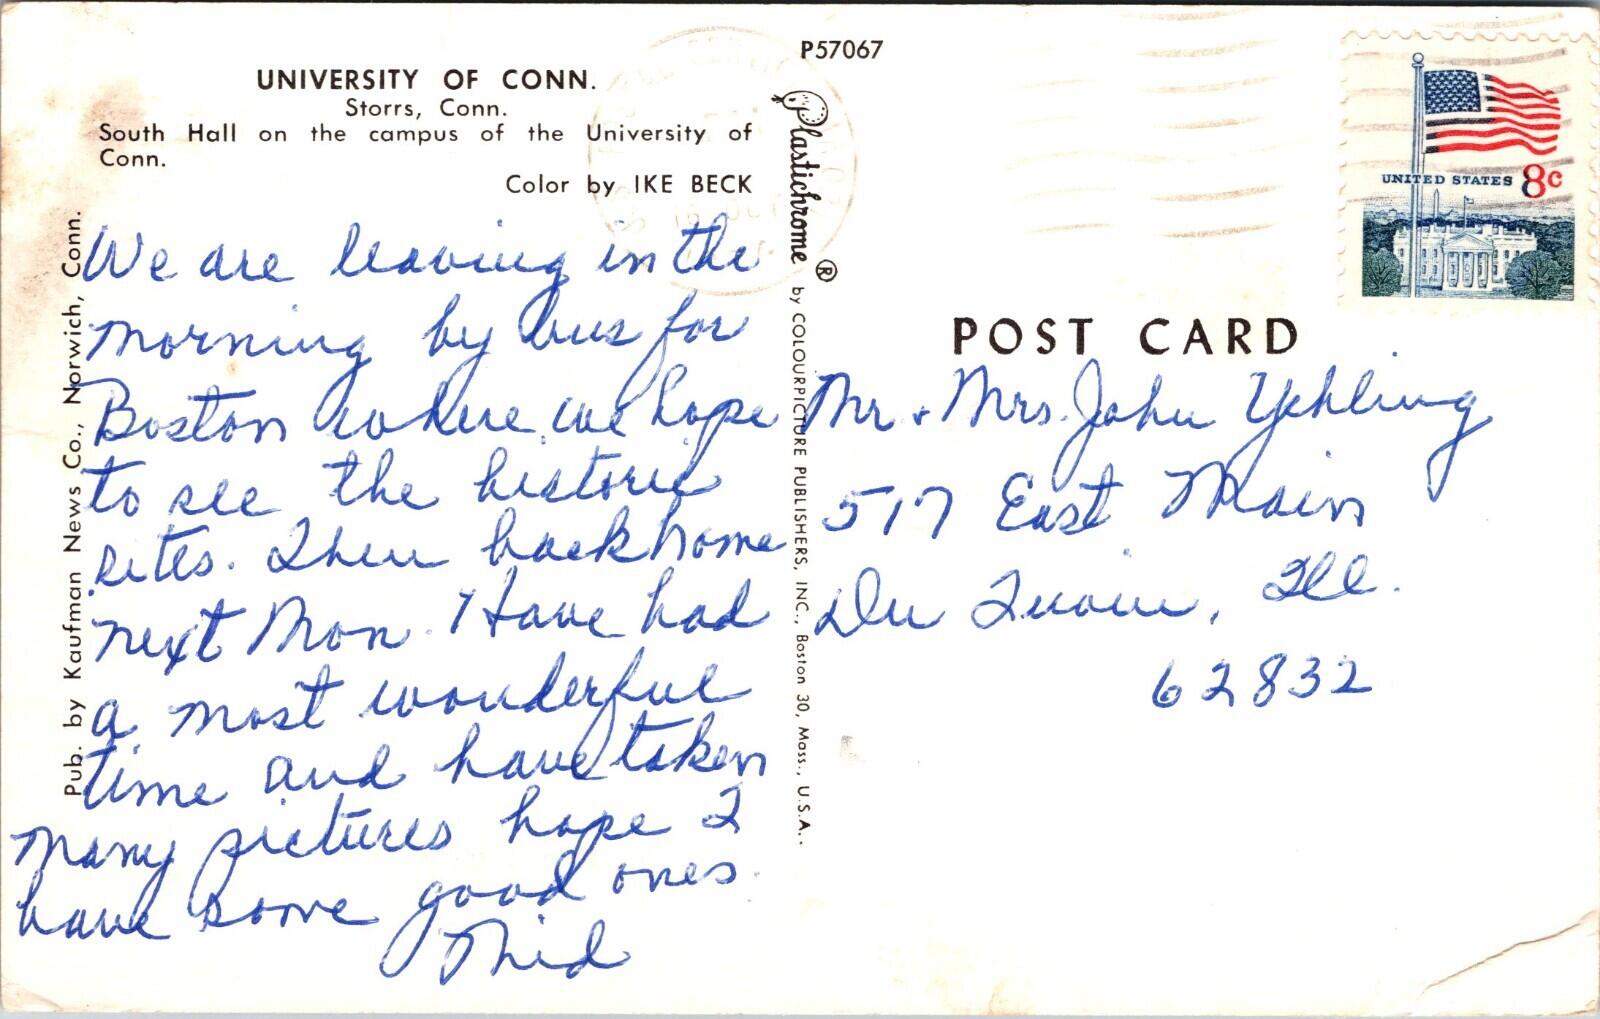 P57067
UNIVERSITY OF CONN.
Storrs, Conn.
South Hall on the campus of the University of
Conn.
Color by IKE BECK
We are leaving in the
morning by bus for
Boston where we hope
to see the historic
sites. Then back home
next Mon. Have had
a most wonderful
time and have taken
many pictures hope I
have some good ones.
Mid
Pub. by Kaufman News Co., Norwich, Conn.
Plastichrome ® by COLOURPICTURE PUBLISHERS, INC., Boston 30, Mass., U.S.A.
UNITED STATES 8c
POST CARD
Mr. + Mrs. John Yehling
517 East Main
Du Quoin, Ill.
62832